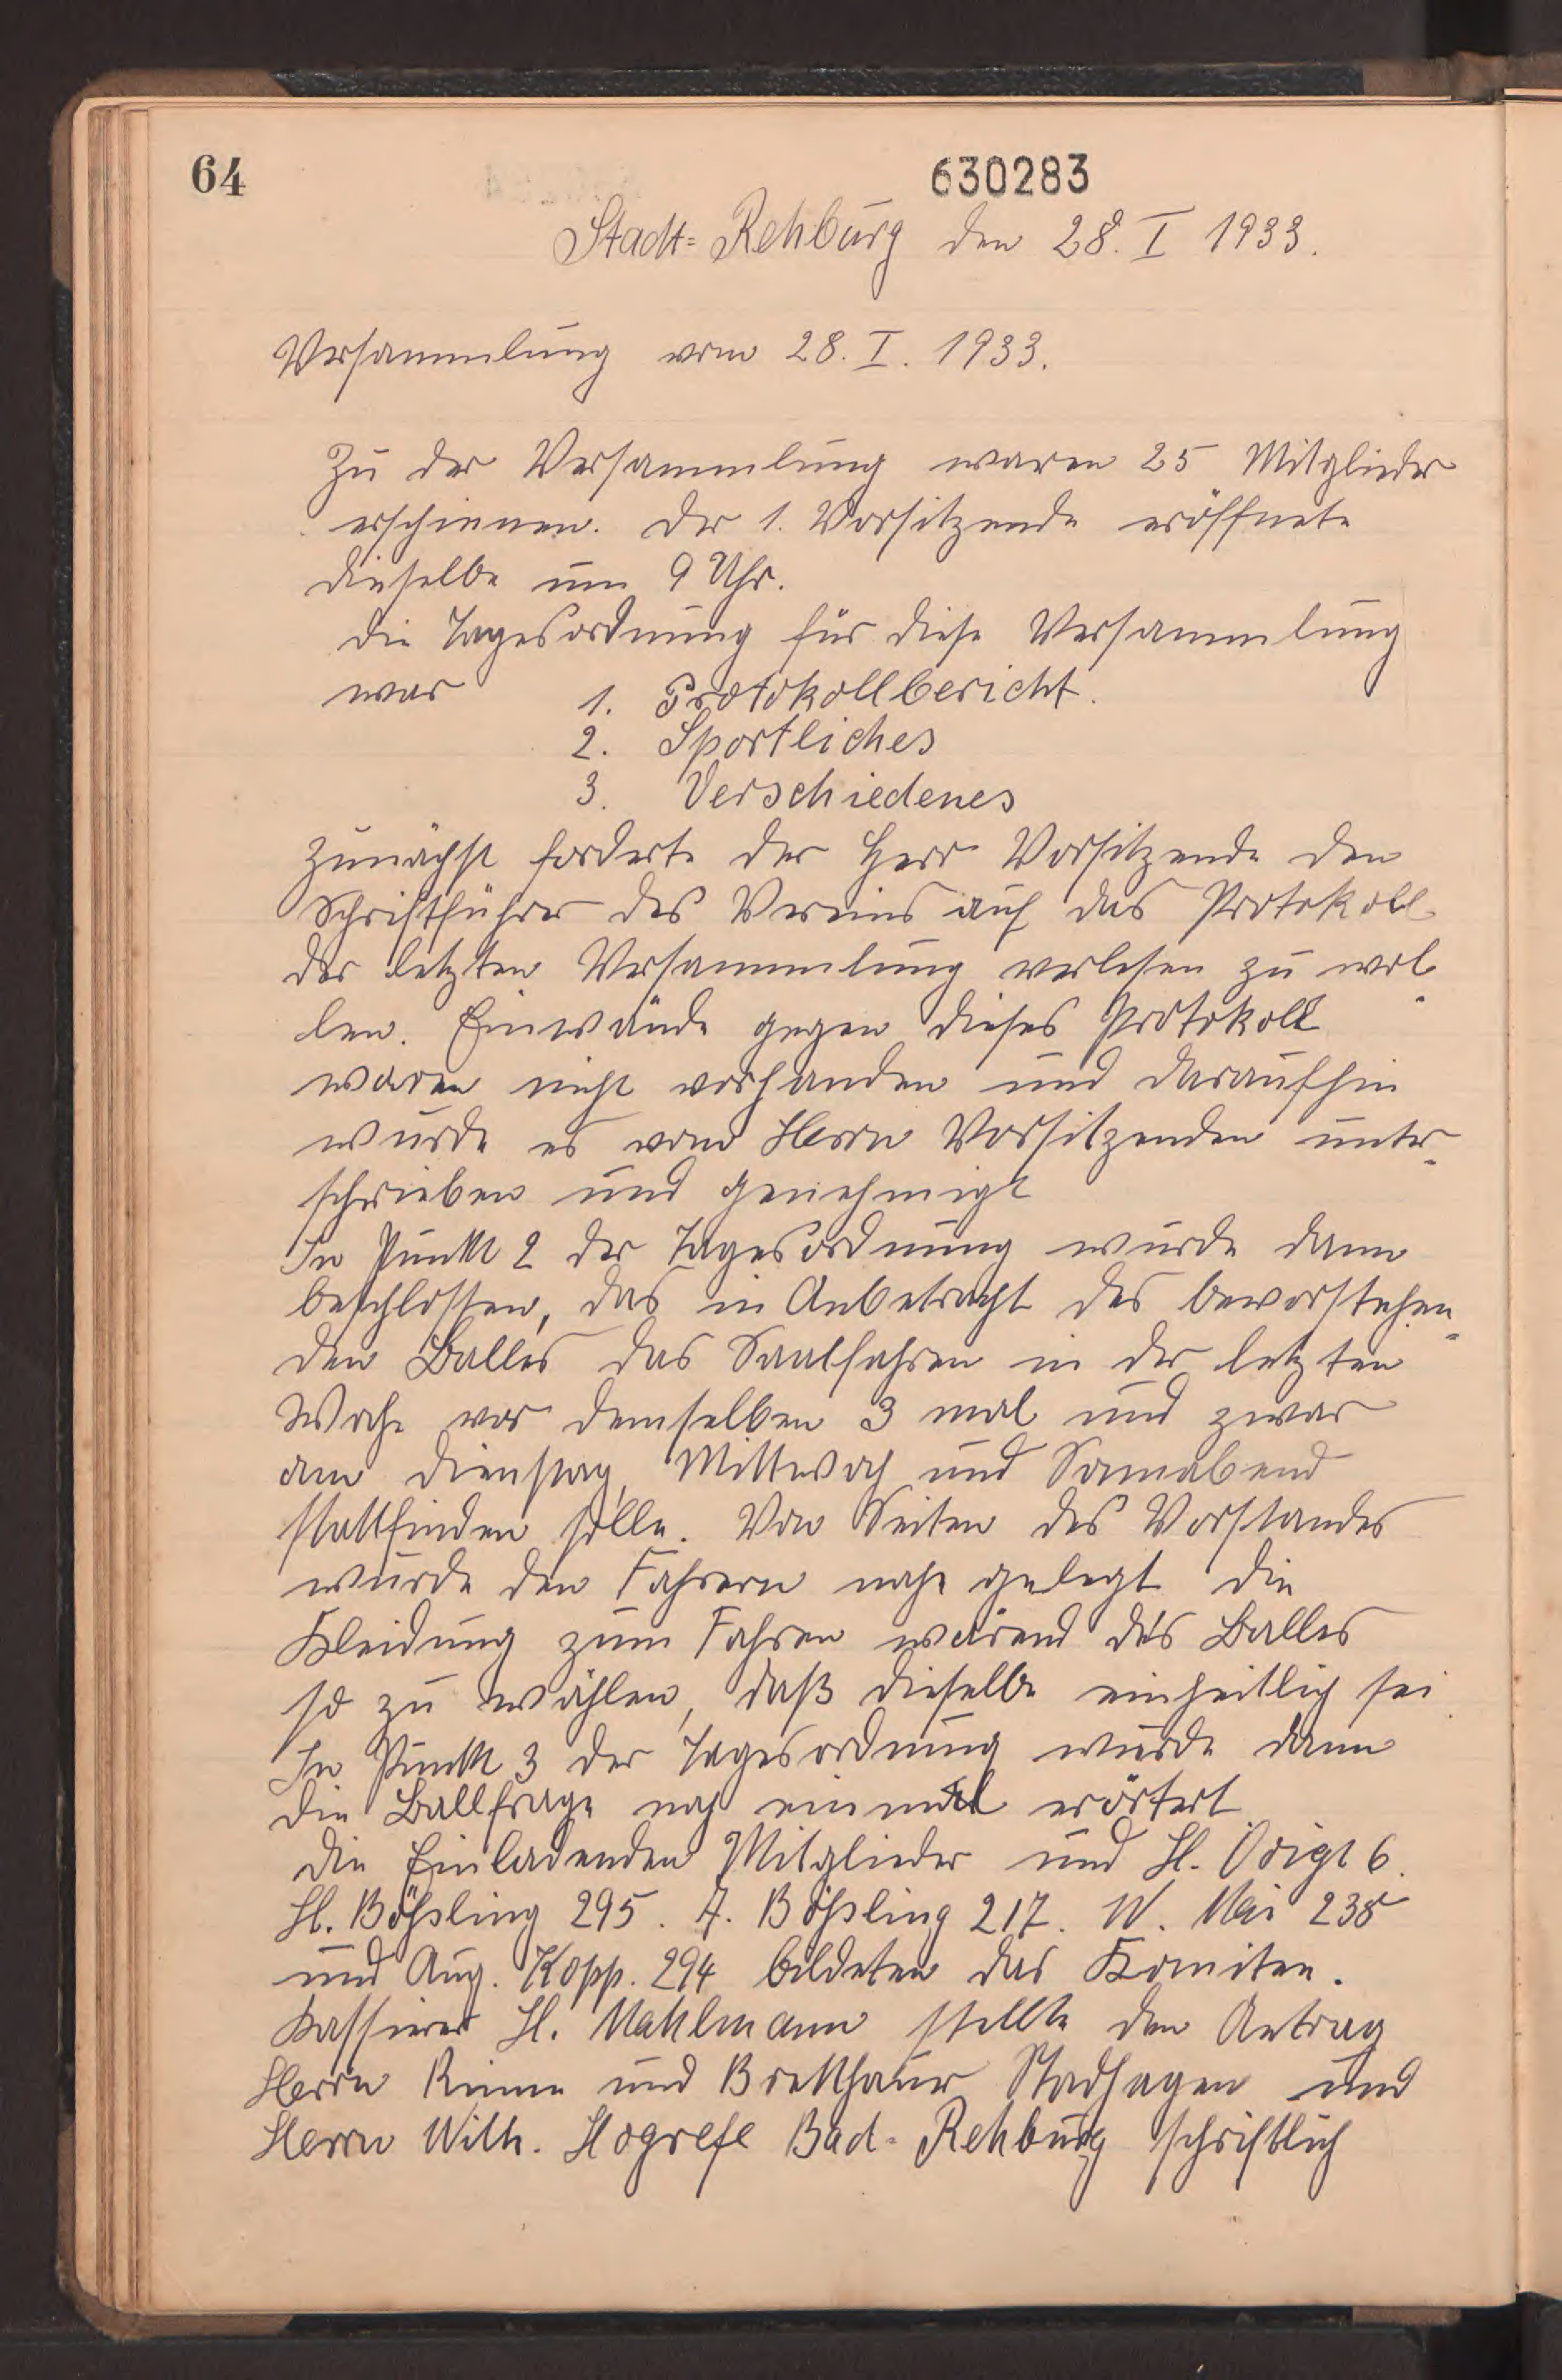 64
630283
Stadt=Rehburg den 28. I 1933.
Versammlung vom 28. I. 1933.
Zu der Versammlung waren 25 Mitglieder
erschienen. Der 1. Vorsitzende eröffnete
dieselbe um 9 Uhr.
Die Tagesordnung für diese Versammlung
war 1. Protokollbericht.
2. Sportliches
3. Verschiedenes
Zunächst forderte der Herr Vorsitzende den
Schriftführer des Vereins auf das Protokoll
der letzten Versammlung verlesen zu wol-
len. Einwände gegen dieses Protokoll
waren nicht vorhanden und daraufhin
wurde es vom Herrn Vorsitzenden unter-
schrieben und genehmigt
In Punkt 2 der Tagesordnung wurde dann
beschlossen, das in Anbetracht des bevorstehen-
den Balles das Saalfahren in der letzten
Woche vor demselben 3 mal und zwar
am Dienstag, Mittwoch und Sonnabend
stattfinden solle. Von Seiten des Vorstandes
wurde den Fahrern nahe gelegt die
Kleidung zum Fahren wärend des Balles
so zu wählen, daß dieselbe einheitlich sei.
In Punkt 3 der Tagesordnung wurde dann
die Ballfrage noch einmal erörtert
Die Einladenden Mitglieder und H. Voigt 6.
H. Bößling 295. A. Bößling 217. W. Mai 238
und Aug. Kopp. 294 bildeten das Komitee.
Kassierer H. Mahlmann stellte den Antrag
Herrn Rinne und Brekthauer Stadhagen und
Herrn Wilh. Hogrefe Bad-Rehburg schriftlich